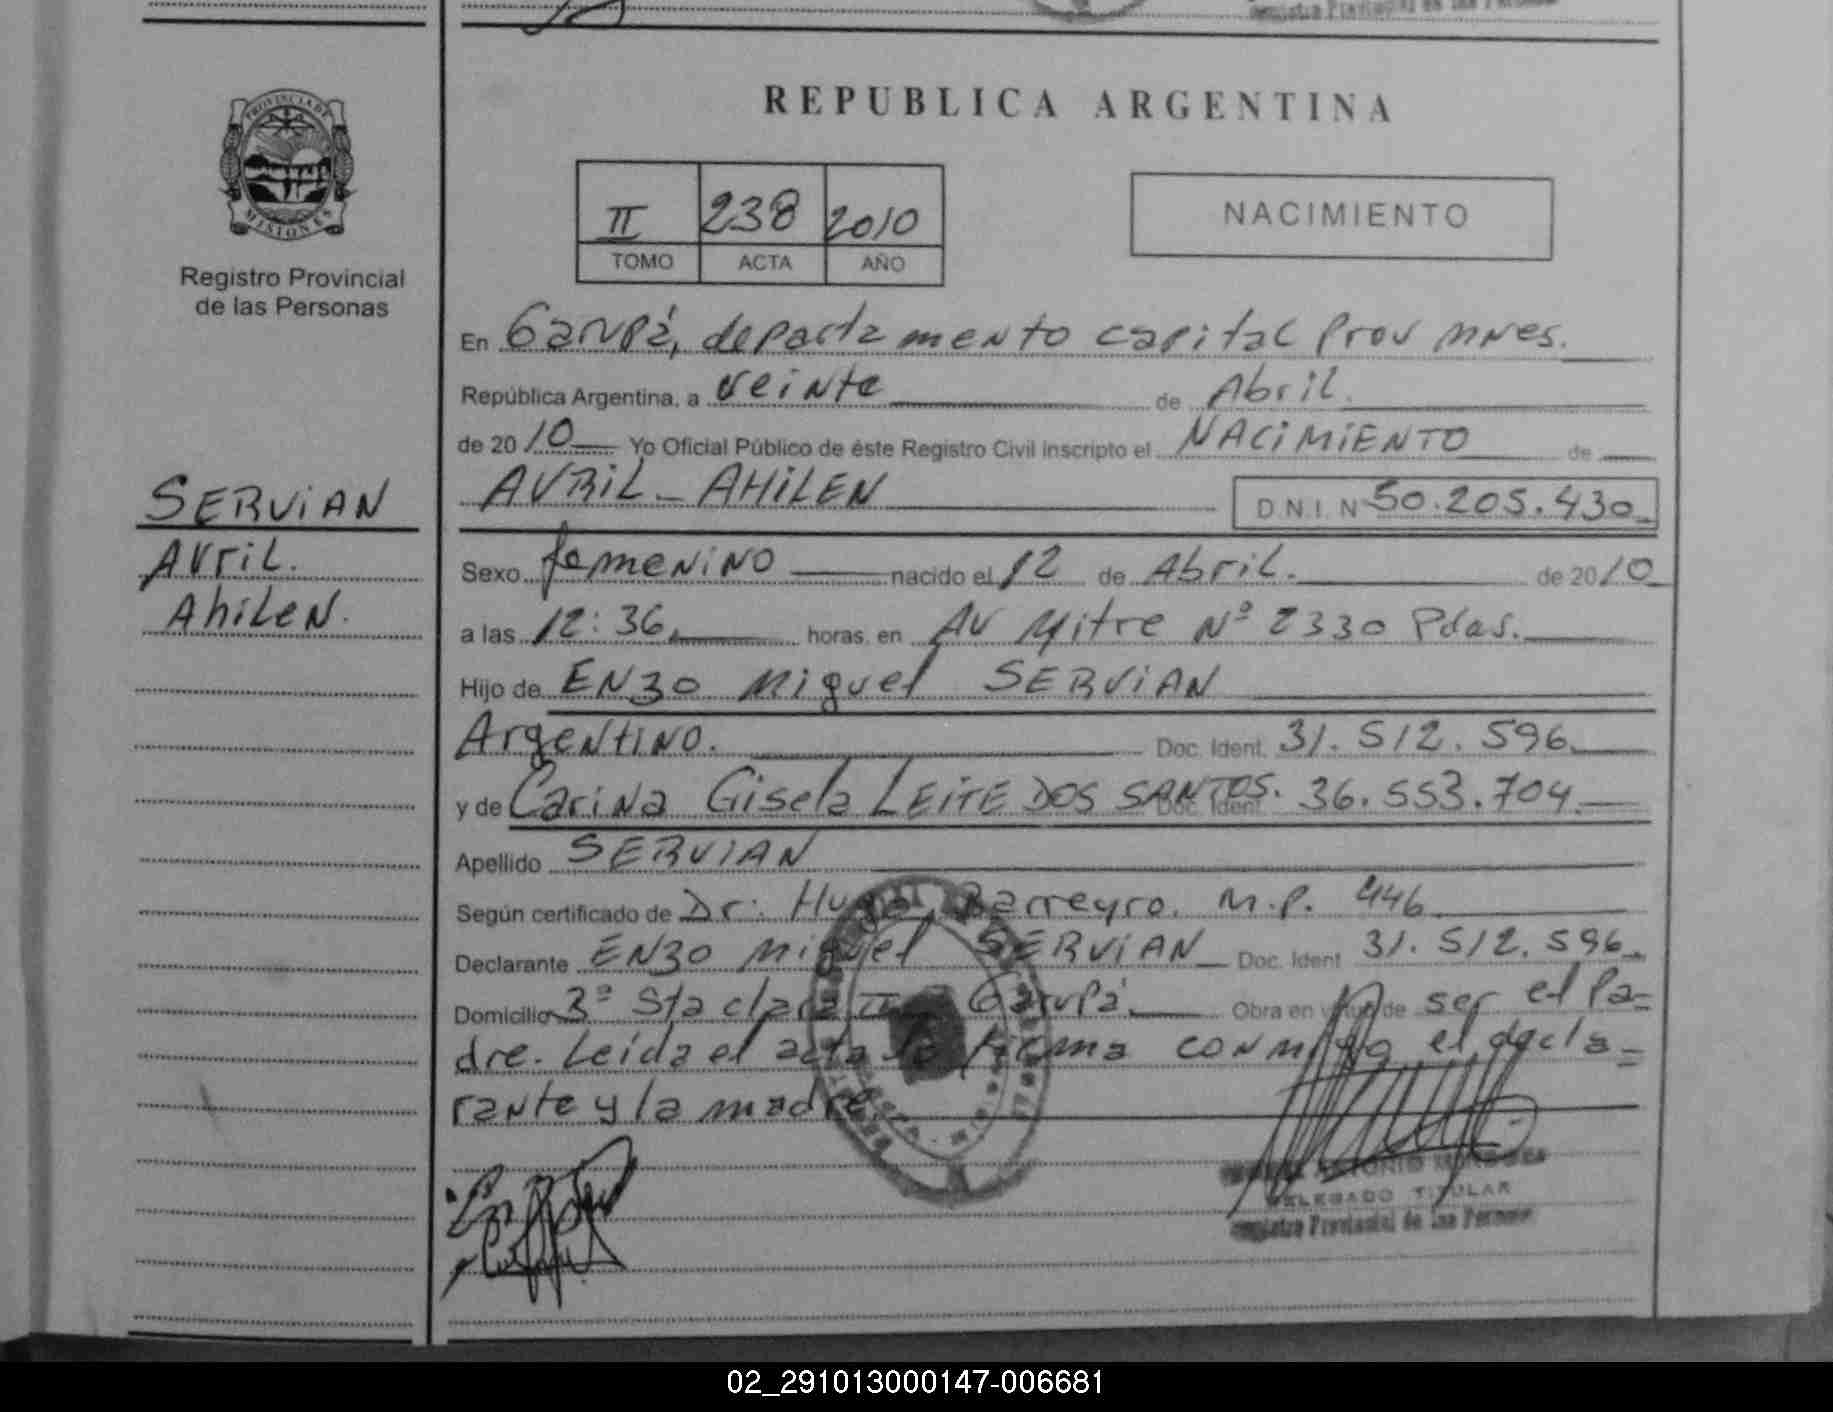 Registro Provincial de las Personas
PROVINCIA DE
MISIONES
Registro Provincial
de las Personas
SERVIAN
Avril.
Ahilen.
REPUBLICA ARGENTINA
II 238 2010
TOMO ACTA AÑO
NACIMIENTO
En Garupá, departamento capital Prov Mnes.
República Argentina, a veinte de Abril.
de 2010 Yo Oficial Público de éste Registro Civil inscripto el NACIMIENTO de
AVRIL AHILEN D.N.I. N 50.205.430
Sexo femenino nacido el 12 de Abril. de 2010
a las 12:36 horas, en Av Mitre Nº 2330 Pdas.
Hijo de ENZO Miguel SERVIAN
Argentino. Doc. Ident. 31.512.596
y de Carina Gisela LEITE DOS SANTOS. Doc. Ident. 36.553.704
Apellido SERVIAN
Según certificado de Dr: Hugo Barreyro. M.P. 446
Declarante ENZO Miguel SERVIAN Doc. Ident 31.512.596
Domicilio 3ª Sta clara II Garupá. Obra en virtud de ser el Pa-
dre. Leida el acta la firma conmigo el decla-
rante y la madre
ANTONIO
DELEGADO TITULAR
Registro Provincial de las Personas
02_291013000147-006681